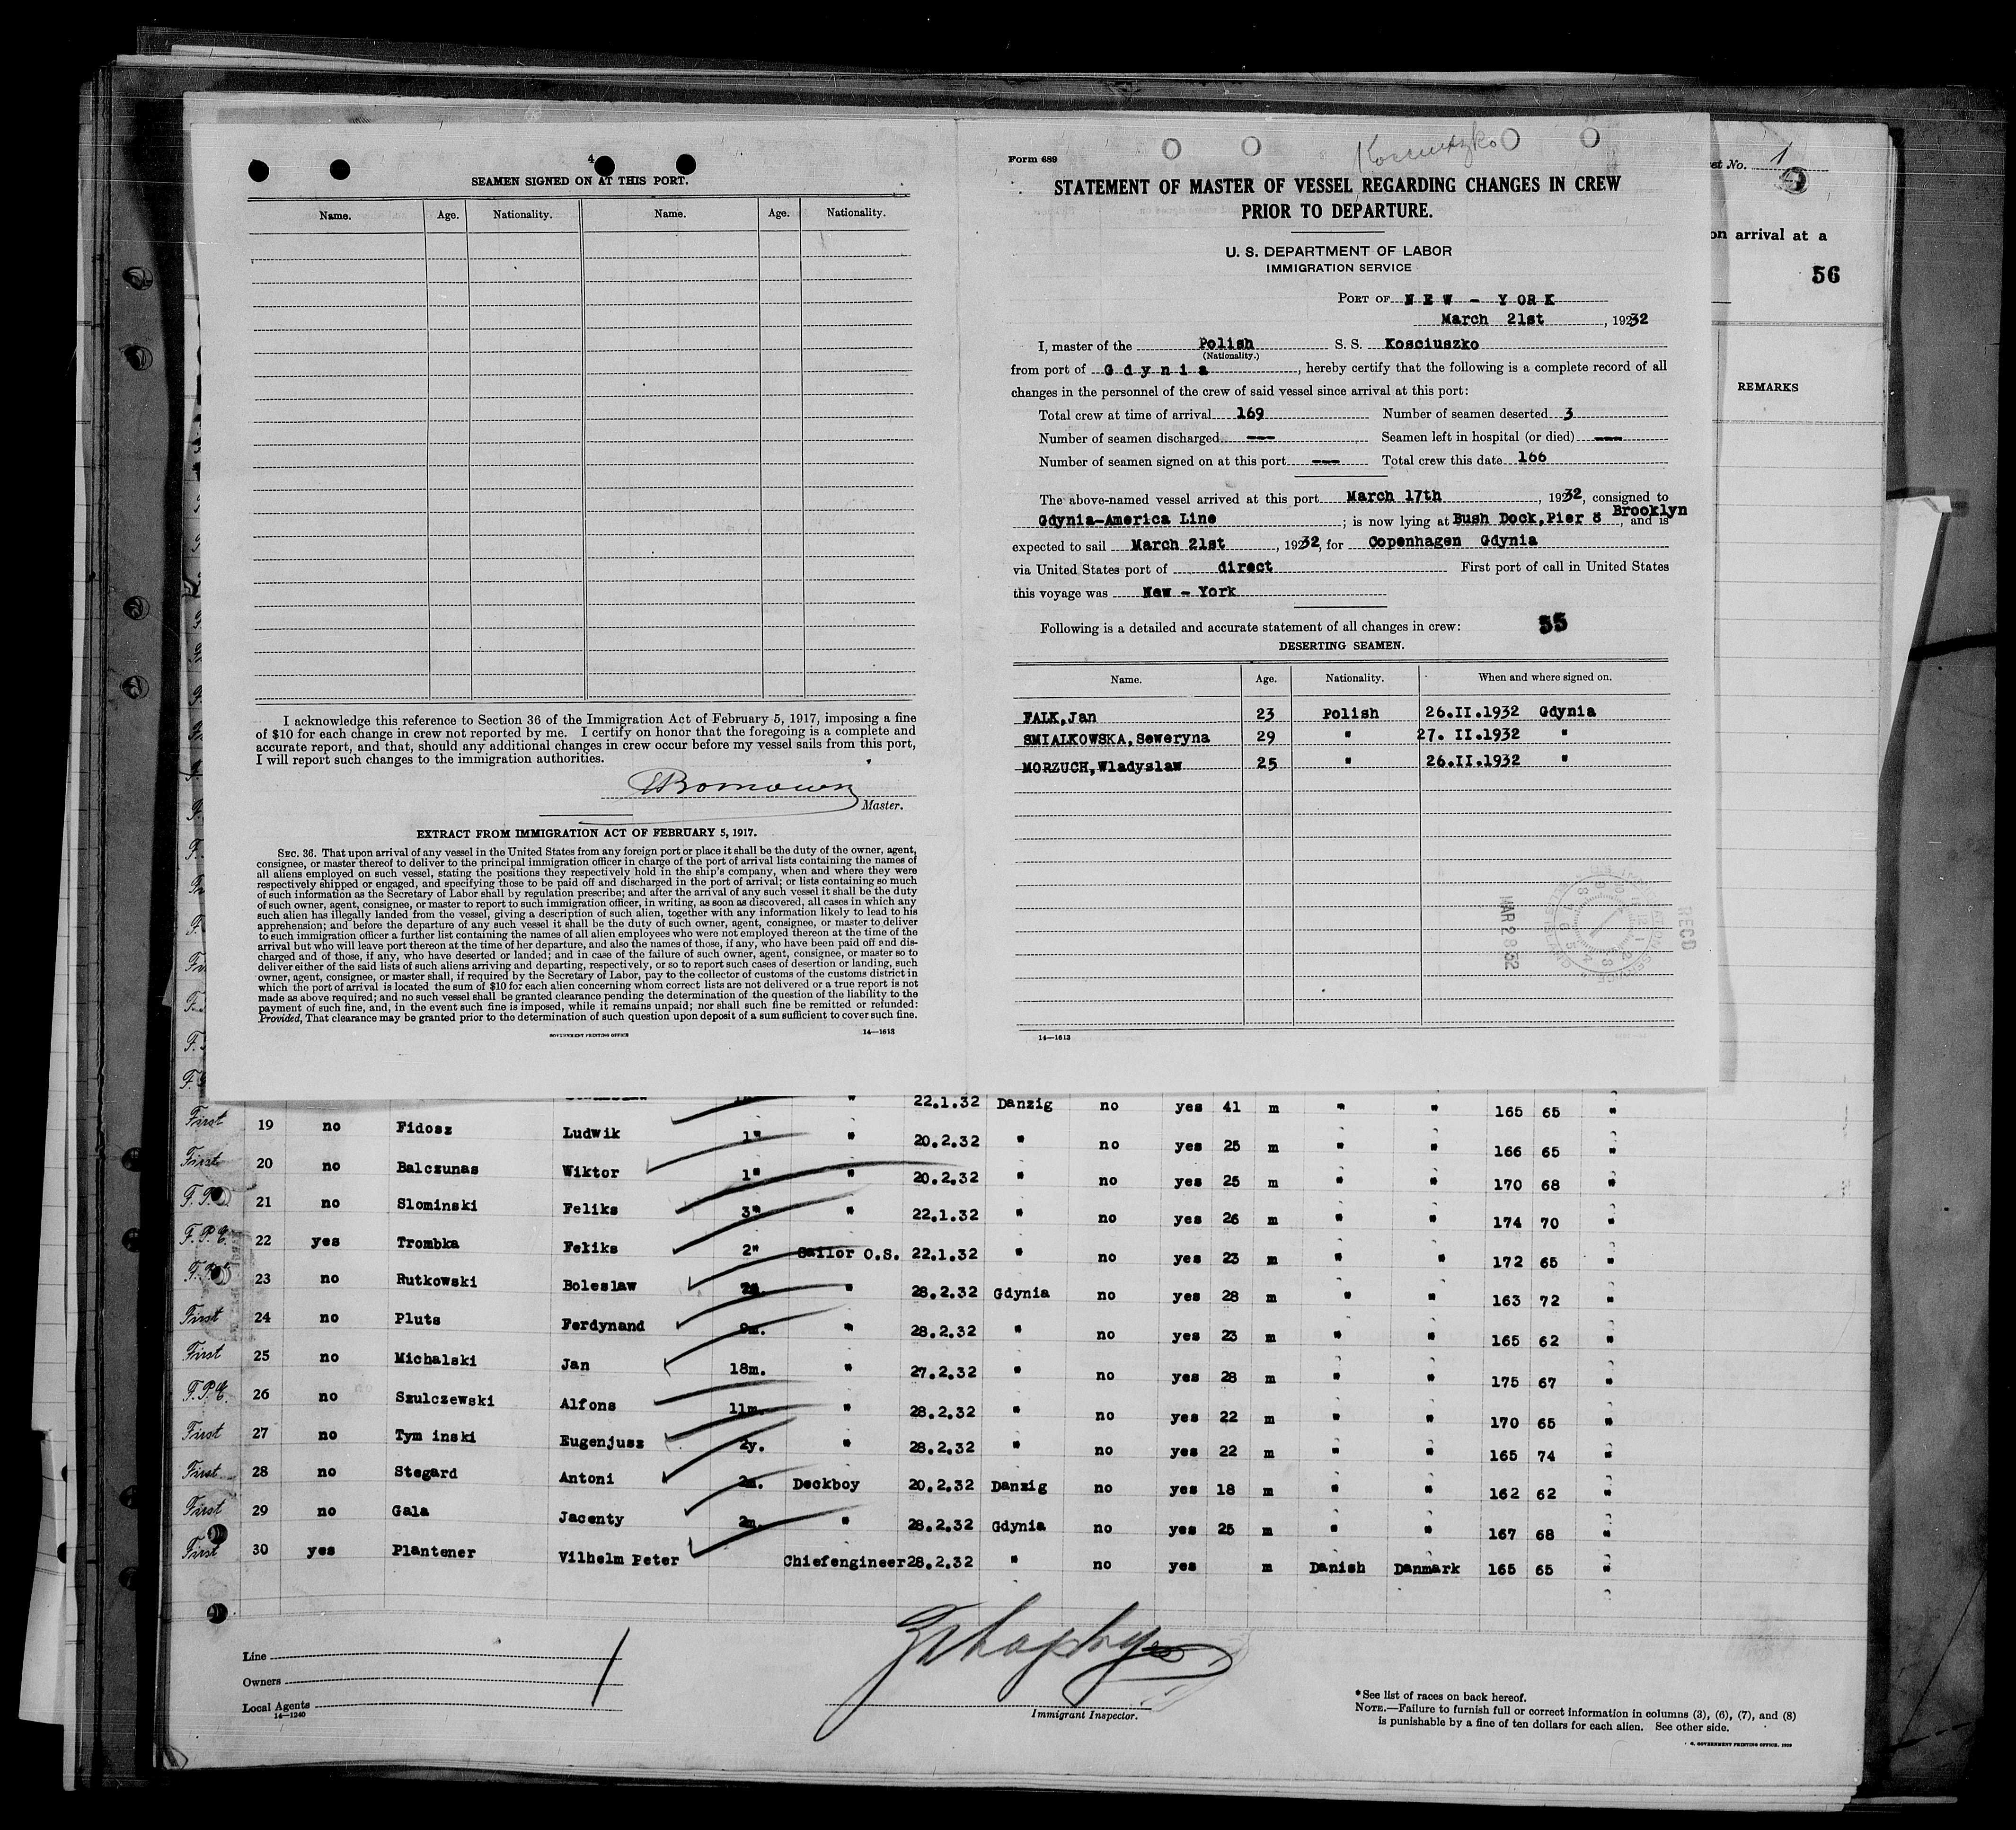 4
SEAMEN SIGNED ON AT THIS PORT.
Name. Age. Nationality. Name. Age. Nationality.
I acknowledge this reference to Section 36 of the Immigration Act of February 5, 1917, imposing a fine
of $10 for each change in crew not reported by me. I certify on honor that the foregoing is a complete and
accurate report, and that, should any additional changes in crew occur before my vessel sails from this port,
I will report such changes to the immigration authorities.
Master.
EXTRACT FROM IMMIGRATION ACT OF FEBRUARY 5, 1917.
SEC. 36. That upon arrival of any vessel in the United States from any foreign port or place it shall be the duty of the owner, agent,
consignee, or master thereof to deliver to the principal immigration officer in charge of the port of arrival lists containing the names of
all aliens employed on such vessel, stating the positions they respectively hold in the ship's company, when and where they were
respectively shipped or engaged, and specifying those to be paid off and discharged in the port of arrival; or lists containing so much
of such information as the Secretary of Labor shall by regulation prescribe; and after the arrival of any such vessel it shall be the duty
of such owner, agent, consignee, or master to report to such immigration officer, in writing, as soon as discovered, all cases in which any
such alien has illegally landed from the vessel, giving a description of such alien, together with any information likely to lead to his
apprehension; and before the departure of any such vessel it shall be the duty of such owner, agent, consignee, or master to deliver
to such immigration officer a further list containing the names of all alien employees who were not employed thereon at the time of the
arrival but who will leave port thereon at the time of her departure, and also the names of those, if any, who have been paid off and dis-
charged and of those, if any, who have deserted or landed; and in case of the failure of such owner, agent, consignee, or master so to
deliver either of the said lists of such aliens arriving and departing, respectively, or so to report such cases of desertion or landing, such
owner, agent, consignee, or master shall, if required by the Secretary of Labor, pay to the collector of customs of the customs district in
which the port of arrival is located the sum of $10 for each alien concerning whom correct lists are not delivered or a true report is not
made as above required; and no such vessel shall be granted clearance pending the determination of the question of the liability to the
payment of such fine, and, in the event such fine is imposed, while it remains unpaid; nor shall such fine be remitted or refunded:
Provided, That clearance may be granted prior to the determination of such question upon deposit of a sum sufficient to cover such fine.
GOVERNMENT PRINTING OFFICE 14—1613
Form 689
STATEMENT OF MASTER OF VESSEL REGARDING CHANGES IN CREW
PRIOR TO DEPARTURE.
U. S. DEPARTMENT OF LABOR
IMMIGRATION SERVICE
PORT OF NEW - YORK
March 21st, 1932
I, master of the Polish S. S. Kosciuszko
(Nationality.)
from port of Gdynia, hereby certify that the following is a complete record of all
changes in the personnel of the crew of said vessel since arrival at this port:
Total crew at time of arrival 169 Number of seamen deserted 3
Number of seamen discharged --- Seamen left in hospital (or died) ---
Number of seamen signed on at this port --- Total crew this date 166
The above-named vessel arrived at this port March 17th, 1932, consigned to
Gdynia-America Line; is now lying at Bush Dock, Pier 8 Brooklyn, and is
expected to sail March 21st, 1932, for Copenhagen Gdynia
via United States port of direct First port of call in United States
this voyage was New - York
Following is a detailed and accurate statement of all changes in crew: 55
DESERTING SEAMEN.
Name. Age. Nationality. When and where signed on.
FALK, Jan 23 Polish 26.II.1932 Gdynia
SMIALKOWSKA, Seweryna 29 " 27. II.1932 "
MORZUCH, Wladyslaw 25 " 26.II.1932 "
MAR 28 32
RECD
14—1613
et No. 1
on arrival at a
56
REMARKS
22.1.32 Danzig no yes 41 m " " 165 65 "
First 19 no Fidosz Ludwik 1" " 20.2.32 " no yes 25 m " " 166 65 "
First 20 no Balczunas Wiktor 1" " 20.2.32 " no yes 25 m " " 170 68 "
F.P. 21 no Slominski Feliks 3" " 22.1.32 " no yes 26 m " " 174 70 "
F.P.E. 22 yes Trombka Feliks 2" Sailor O.S. 22.1.32 " no yes 23 m " " 172 65 "
23 no Rutkowski Boleslaw " 28.2.32 Gdynia no yes 28 m " " 163 72 "
First 24 no Pluts Ferdynand 9m. " 28.2.32 " no yes 23 m " " 165 62 "
First 25 no Michalski Jan 18m. " 27.2.32 " no yes 28 m " " 175 67 "
F.P.E. 26 no Szulczewski Alfons 11m. " 28.2.32 " no yes 22 m " " 170 65 "
First 27 no Tym inski Eugenjusz 2y. " 28.2.32 " no yes 22 m " " 165 74 "
First 28 no Stegard Antoni 2m. Deckboy 20.2.32 Danzig no yes 18 m " " 162 62 "
First 29 no Gala Jacenty 2m. " 28.2.32 Gdynia no yes 25 m " " 167 68 "
First 30 yes Plantener Vilhelm Peter Chiefengineer 28.2.32 " no yes m Danish Danmark 165 65 "
Line
Owners
Local Agents
14—1240
Immigrant Inspector.
*See list of races on back hereof.
NOTE.—Failure to furnish full or correct information in columns (3), (6), (7), and (8)
is punishable by a fine of ten dollars for each alien. See other side.
GOVERNMENT PRINTING OFFICE.